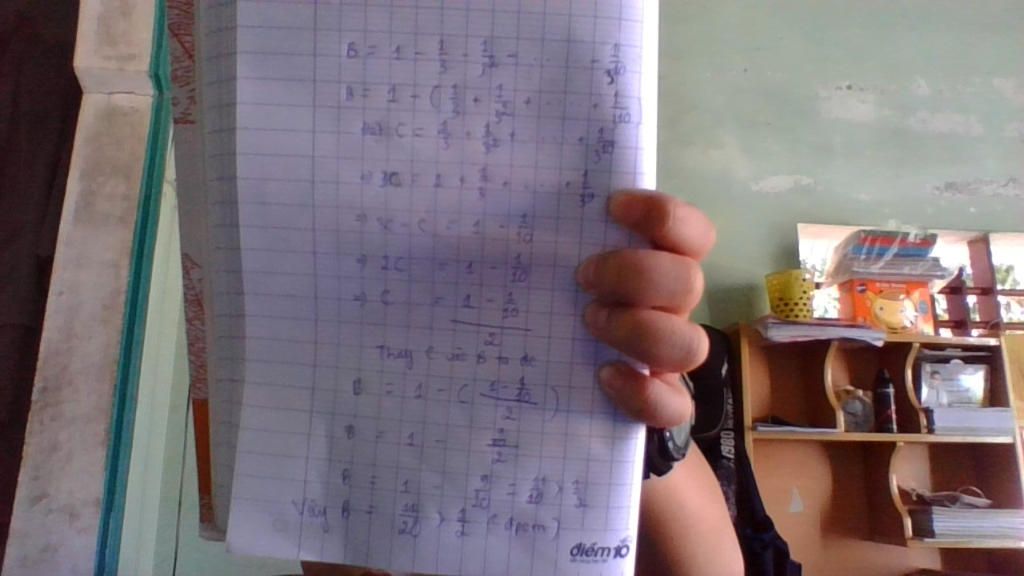 B = 1 - 1/3 - 1/3² - ...... - 1/3¹⁰
B = 1 - ( 1/3 + 1/3² + ..... + 1/3¹⁰ )
C = 1/3 + 1/3² + ..... + 1/3¹⁰
⇒ 3C = 1 + 1/3 + .... +
⇒ 3C - C = 1 - 1/10
⇒ 2C = 1 - 1/10
⇒ C = (1 - 1/10)/2
Thay C vào B ta đc
B = 1 - ( (1 - 1/10)/2 )
B = 1 -
B = 1 -
Vậy B = 11/20 > 1/2 (đpcm)
điểm 10
1980